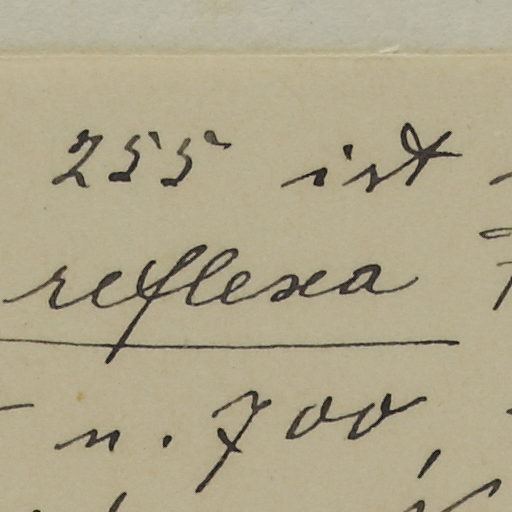 255 ist
reflexa
n. 700,